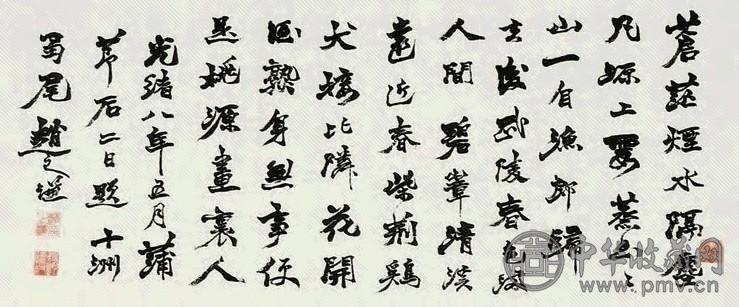 蒼茫煙水隔塵
凡
山一自漁郎歸
去後武陵春色滿
人間碧葦清溪
遠近春柴荊鷄
犬接比隣花開
酒熟身無事便
是桃源畫裏人
光緒八年五月蒲
節后二日題十洲
尾趙之謙
中华收藏网
www.pmv.cn